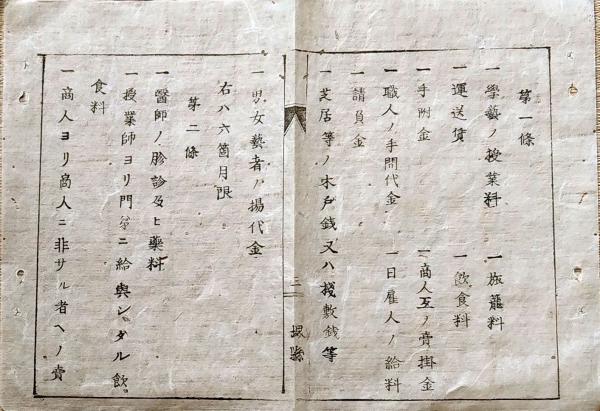 第一條
一學藝ノ授業料　一旅籠料
一運送賃　一飲食料
一手附金　一商人互ノ賣掛金
一職人ノ手間代金　一日雇人ノ給料
一請負金
一芝居等ノ木戸銭又ハ棧敷銭等
二
堺縣
一男女藝者ノ揚代金
右ハ六箇月限
第二條
一醫師ノ胗診及ヒ藥料
一授業師ヨリ門弟ニ給與シタル飲
食料
一商人ヨリ商人ニ非サル者ヘノ賣